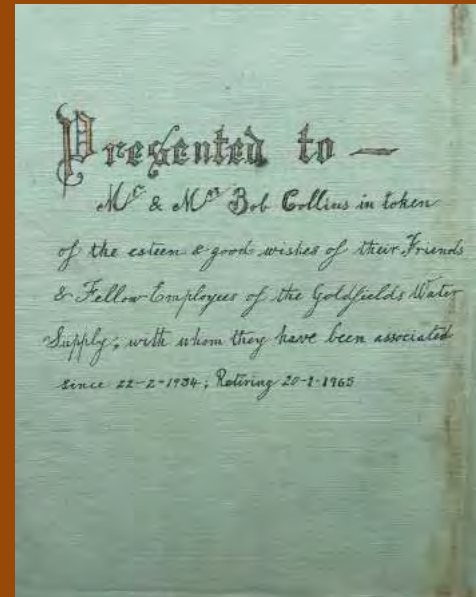 Presented to —
Mr & Mrs Bob Collins in token
of the esteem & good wishes of their Friends
& Fellow Employees of the Goldfields Water
Supply; with whom they have been associated
since 22-2-1934; Retiring 20-1-1965